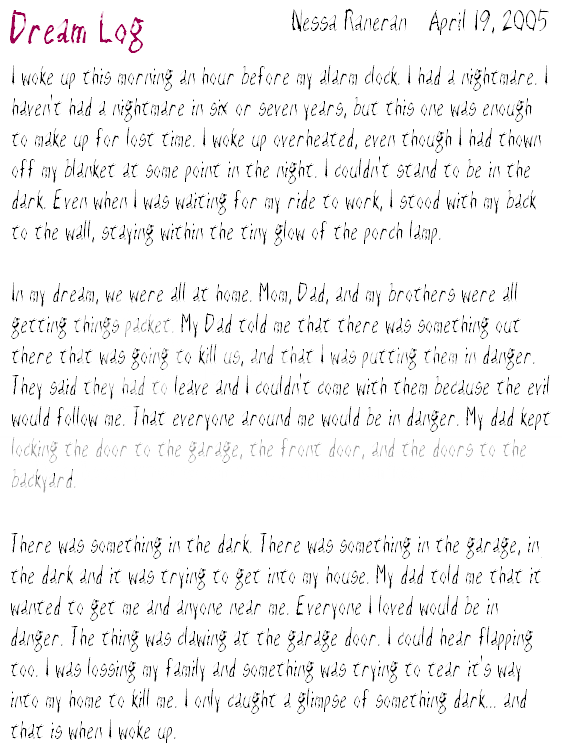 Dream Log
Nessa Raneran April 19, 2005
I woke up this morning an hour before my alarm clock. I had a nightmare. I
haven't had a nightmare in six or seven years, but this one was enough
to make up for lost time. I woke up overheated, even though I had thown
off my blanket at some point in the night. I couldn't stand to be in the
dark. Even when I was waiting for my ride to work, I stood with my back
to the wall, staying within the tiny glow of the porch lamp.
In my dream, we were all at home. Mom, Dad, and my brothers were all
getting things packet. My Dad told me that there was something out
there that was going to kill us, and that I was putting them in danger.
They said they had to leave and I couldn't come with them because the evil
would follow me. That everyone around me would be in danger. My dad kept
locking the door to the garage, the front door, and the doors to the
backyard.
There was something in the dark. There was something in the garage, in
the dark and it was trying to get into my house. My dad told me that it
wanted to get me and anyone near me. Everyone I loved would be in
danger. The thing was clawing at the garage door. I could hear flapping
too. I was lossing my family and something was trying to tear it's way
into my home to kill me. I only caught a glimpse of something dark... and
that is when I woke up.